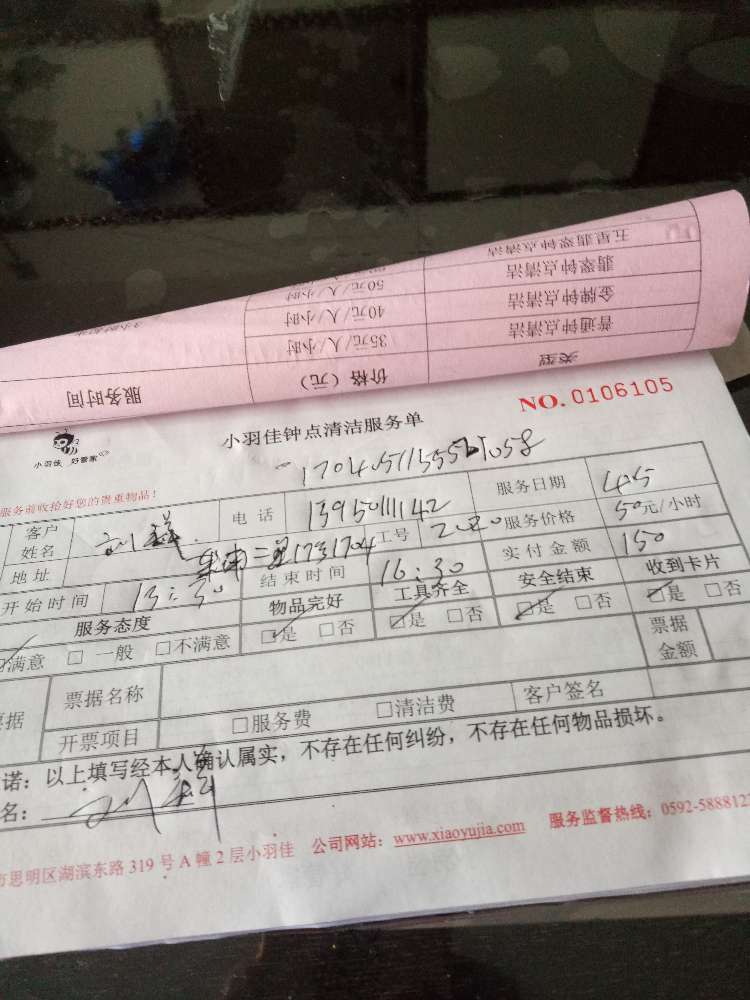 五星翡翠钟点清洁
翡翠钟点清洁
50元/人/小时
金牌钟点清洁 40元/人/小时
普通钟点清洁 35元/人/小时
类型 价格（元） 服务时间
NO. 0106105
小羽佳 好管家
小羽佳钟点清洁服务单
服务前收拾好您的贵重物品！
客户姓名 电话 13950111142 服务日期 4.5
地址 工号 服务价格 50元/小时
开始时间 13:30 结束时间 16:30 实付金额 150
服务态度 物品完好 工具齐全 安全结束 收到卡片
满意 □一般 □不满意 □是 □否 □是 □否 □是 □否 □是 □否
票据名称 票据金额
开票项目 □服务费 □清洁费 客户签名
诺：以上填写经本人确认属实，不存在任何纠纷，不存在任何物品损坏。
名：
市思明区湖滨东路 319 号 A 幢 2 层小羽佳 公司网站：www.xiaoyujia.com 服务监督热线：0592-588812